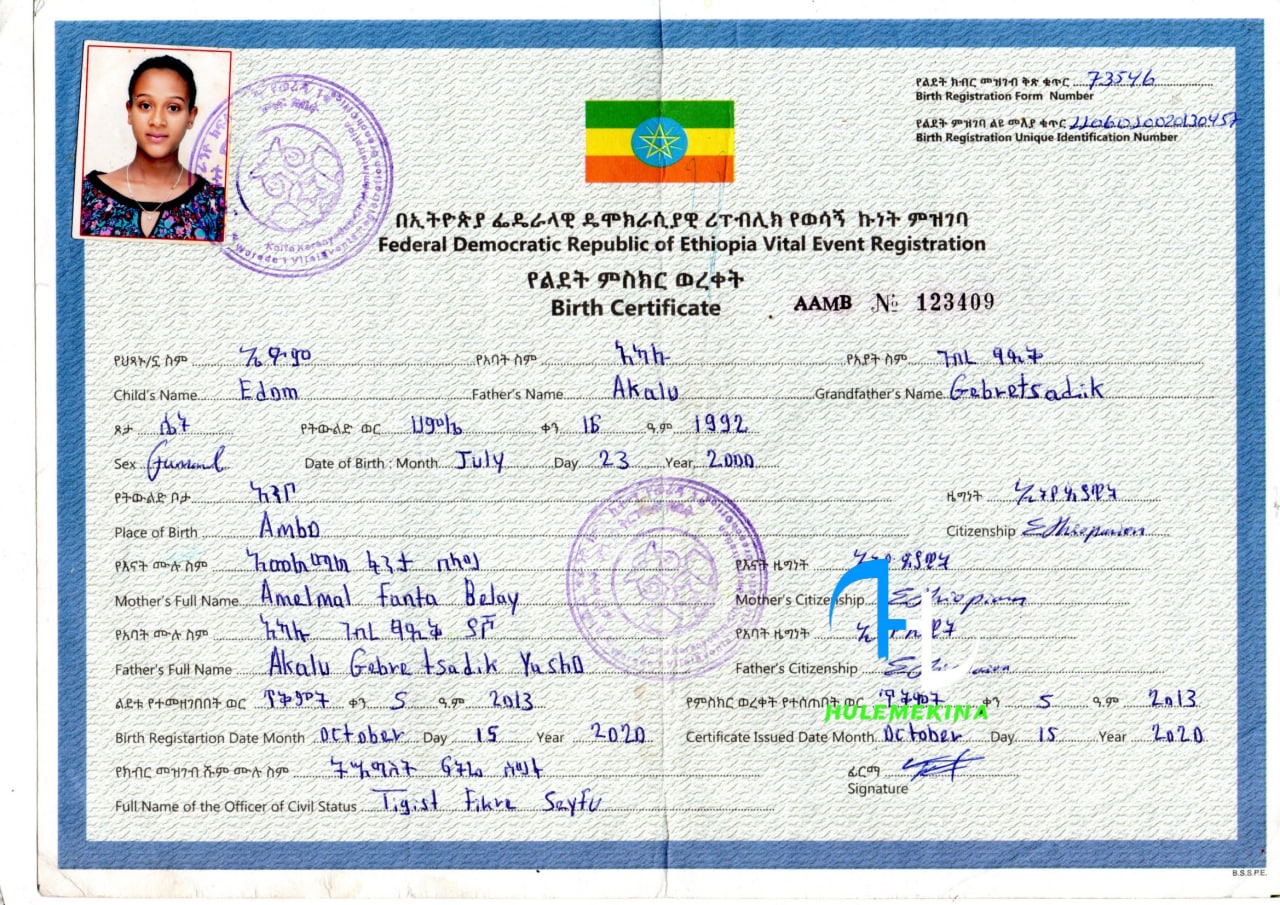 የልደት ክብር መዝገብ ቅጽ ቁጥር 73546
Birth Registration Form Number
የልደት ምዝገባ ልዩ መለያ ቁጥር
Birth Registration Unique Identification Number
በኢትዮጵያ ፌዴራላዊ ዴሞክራሲያዊ ሪፐብሊክ የወሳኝ ኩነት ምዝገባ
Federal Democratic Republic of Ethiopia Vital Event Registration
የልደት ምስክር ወረቀት
Birth Certificate
AAMB № 123409
የህጻኑ/ኗ ስም ኤዶም የአባት ስም አካሉ የአያት ስም ገብረ ፃዲቅ
Child's Name Edom Father's Name Akalu Grandfather's Name Gebretsadik
ጾታ ሴት የትውልድ ወር ሀምሌ ቀን 16 ዓ.ም 1992
Sex Date of Birth : Month July Day 23 Year 2000
የትውልድ ቦታ አምቦ ዜግነት ኢትዮጲያዊት
Place of Birth Ambo Citizenship
የእናት ሙሉ ስም አመልማል ፋንታ በላይ የእናት ዜግነት
Mother's Full Name Amelmal Fanta Belay Mother's Citizenship Ethiopian
የአባት ሙሉ ስም አካሉ ገብረ ፃዲቅ ያሾ የአባት ዜግነት
Father's Full Name Akalu Gebretsadik Yasho Father's Citizenship
ልደቱ የተመዘገበበት ወር ጥቅምት ቀን 5 ዓ.ም 2013 የምስክር ወረቀት የተሰጠበት ወር ጥቅምት ቀን 5 ዓ.ም 2013
Birth Registartion Date Month October Day 15 Year 2020 Certificate Issued Date Month October Day 15 Year 2020
HULEMEKINA
የክብር መዝገብ ሹም ሙሉ ስም ትዕግስት ፍቅሬ ሰይፉ ፊርማ
Full Name of the Officer of Civil Status Tigist Fikre Seyfu Signature
B.S.S.P.E.